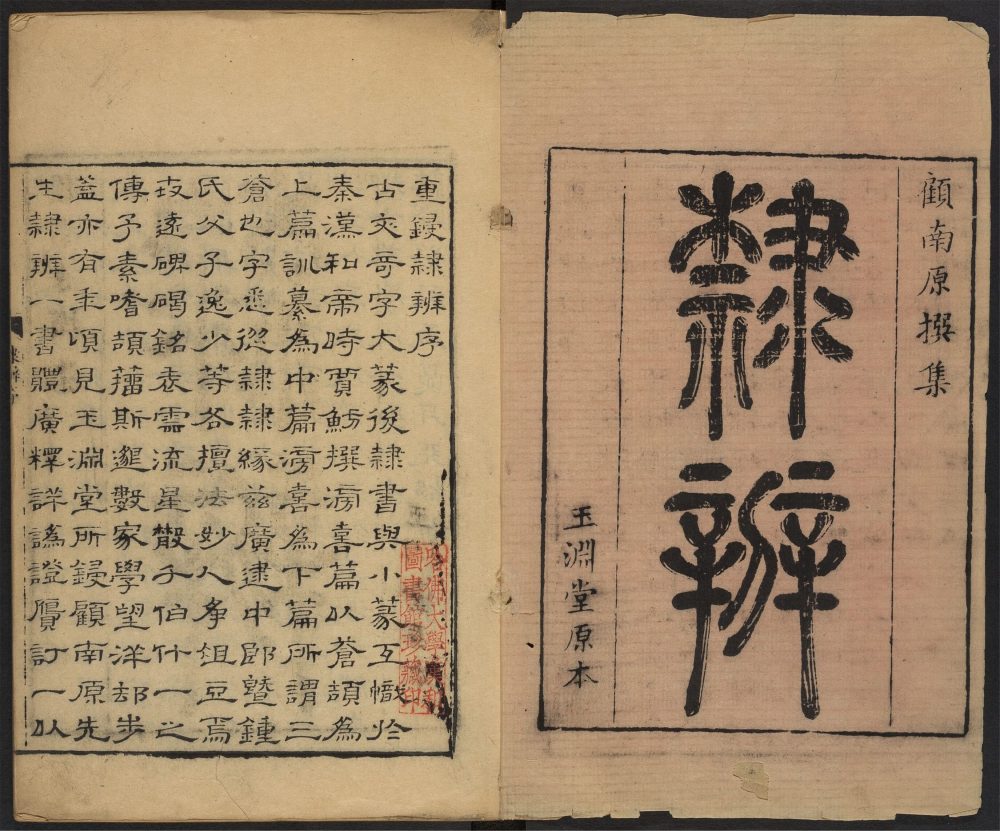 顧南原撰集
隸辨
玉淵堂原本
重鋟隸辨序
古文竒字大篆後隸書與小篆互幟於
秦漢和帝時賈魴撰滂喜篇以蒼頡為
上篇訓纂為中篇滂喜為下篇所謂三
蒼也字悉從隸隸緣茲廣逮中郎暨鍾
氏父子逸少等各擅法妙人爭俎豆焉
遠碑碣銘表流星散千伯什一之
傳予素嗜頡籀斯邈數家學望洋却步
蓋亦有年頃見玉淵堂所鋟顧南原先
生隸辨一書體廣釋詳譌證贗訂一以
哈佛大學漢和
圖書館珍藏印